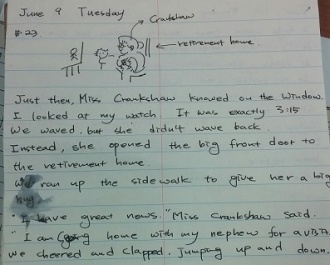 June 9 Tuesday
Crankshaw
retirement home.
Just then, Miss Crankshaw knowed on the window.
I looked at my watch. It was exactly 3:15
We waved, but she didn't wave back.
Instead, she opened the big front door to
the retirement home.
We ran up the sidewalk to give her a big
hug.
"I have great news." Miss Crankshaw said.
"I am going home with my nephew for a visit.
We cheered and clapped. Jumping up and down.